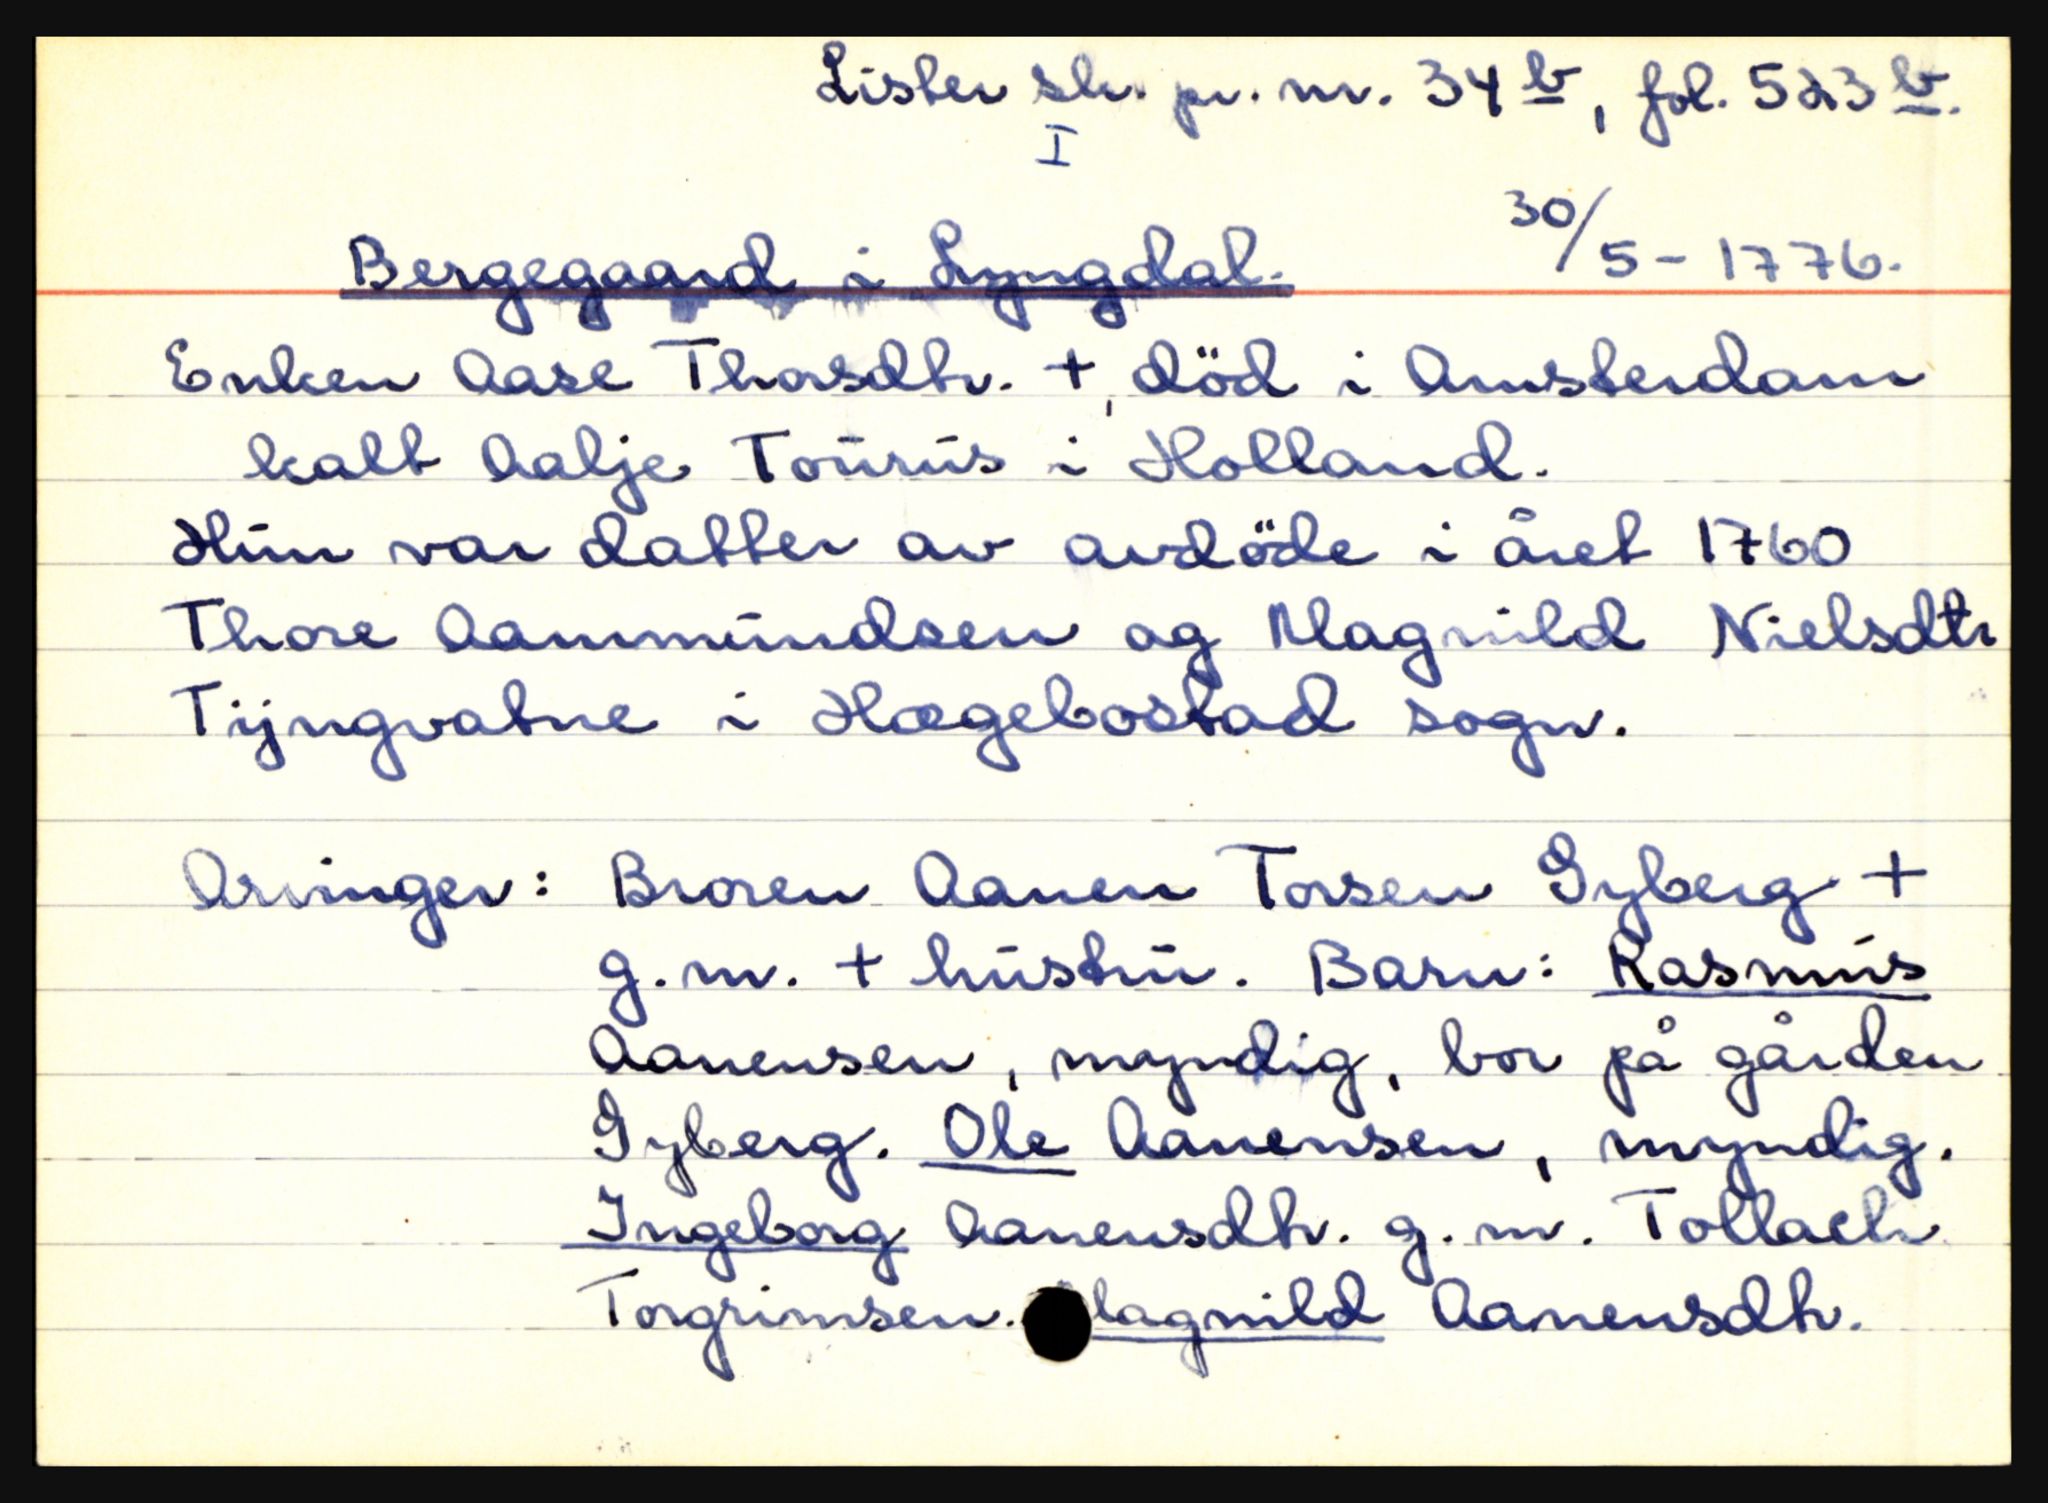 Lister skr. pr. nr. 34 b, fol. 523 b.
I
30/5-1776.
Bergegaard i Lyngdal.
Enken Aase Thorsdtr. +, död i Amsterdam
kalt Aalje Tourus i Holland.
Hun var datter av avdöde i året 1760
Thore Aanmundsen og Magnild Nielsdtr
Tijngvatne i Hægebostad sogn.
Arvinger: Broren Aanen Torsen Gyberg +
g.m. + hustru. Barn: Rasmus
Aanensen, myndig, bor på gården
Gyberg. Ole Aanensen, myndig.
Ingeborg Aanensdtr. g.m. Tollach
Torgrimsen. Magnild Aanensdtr.